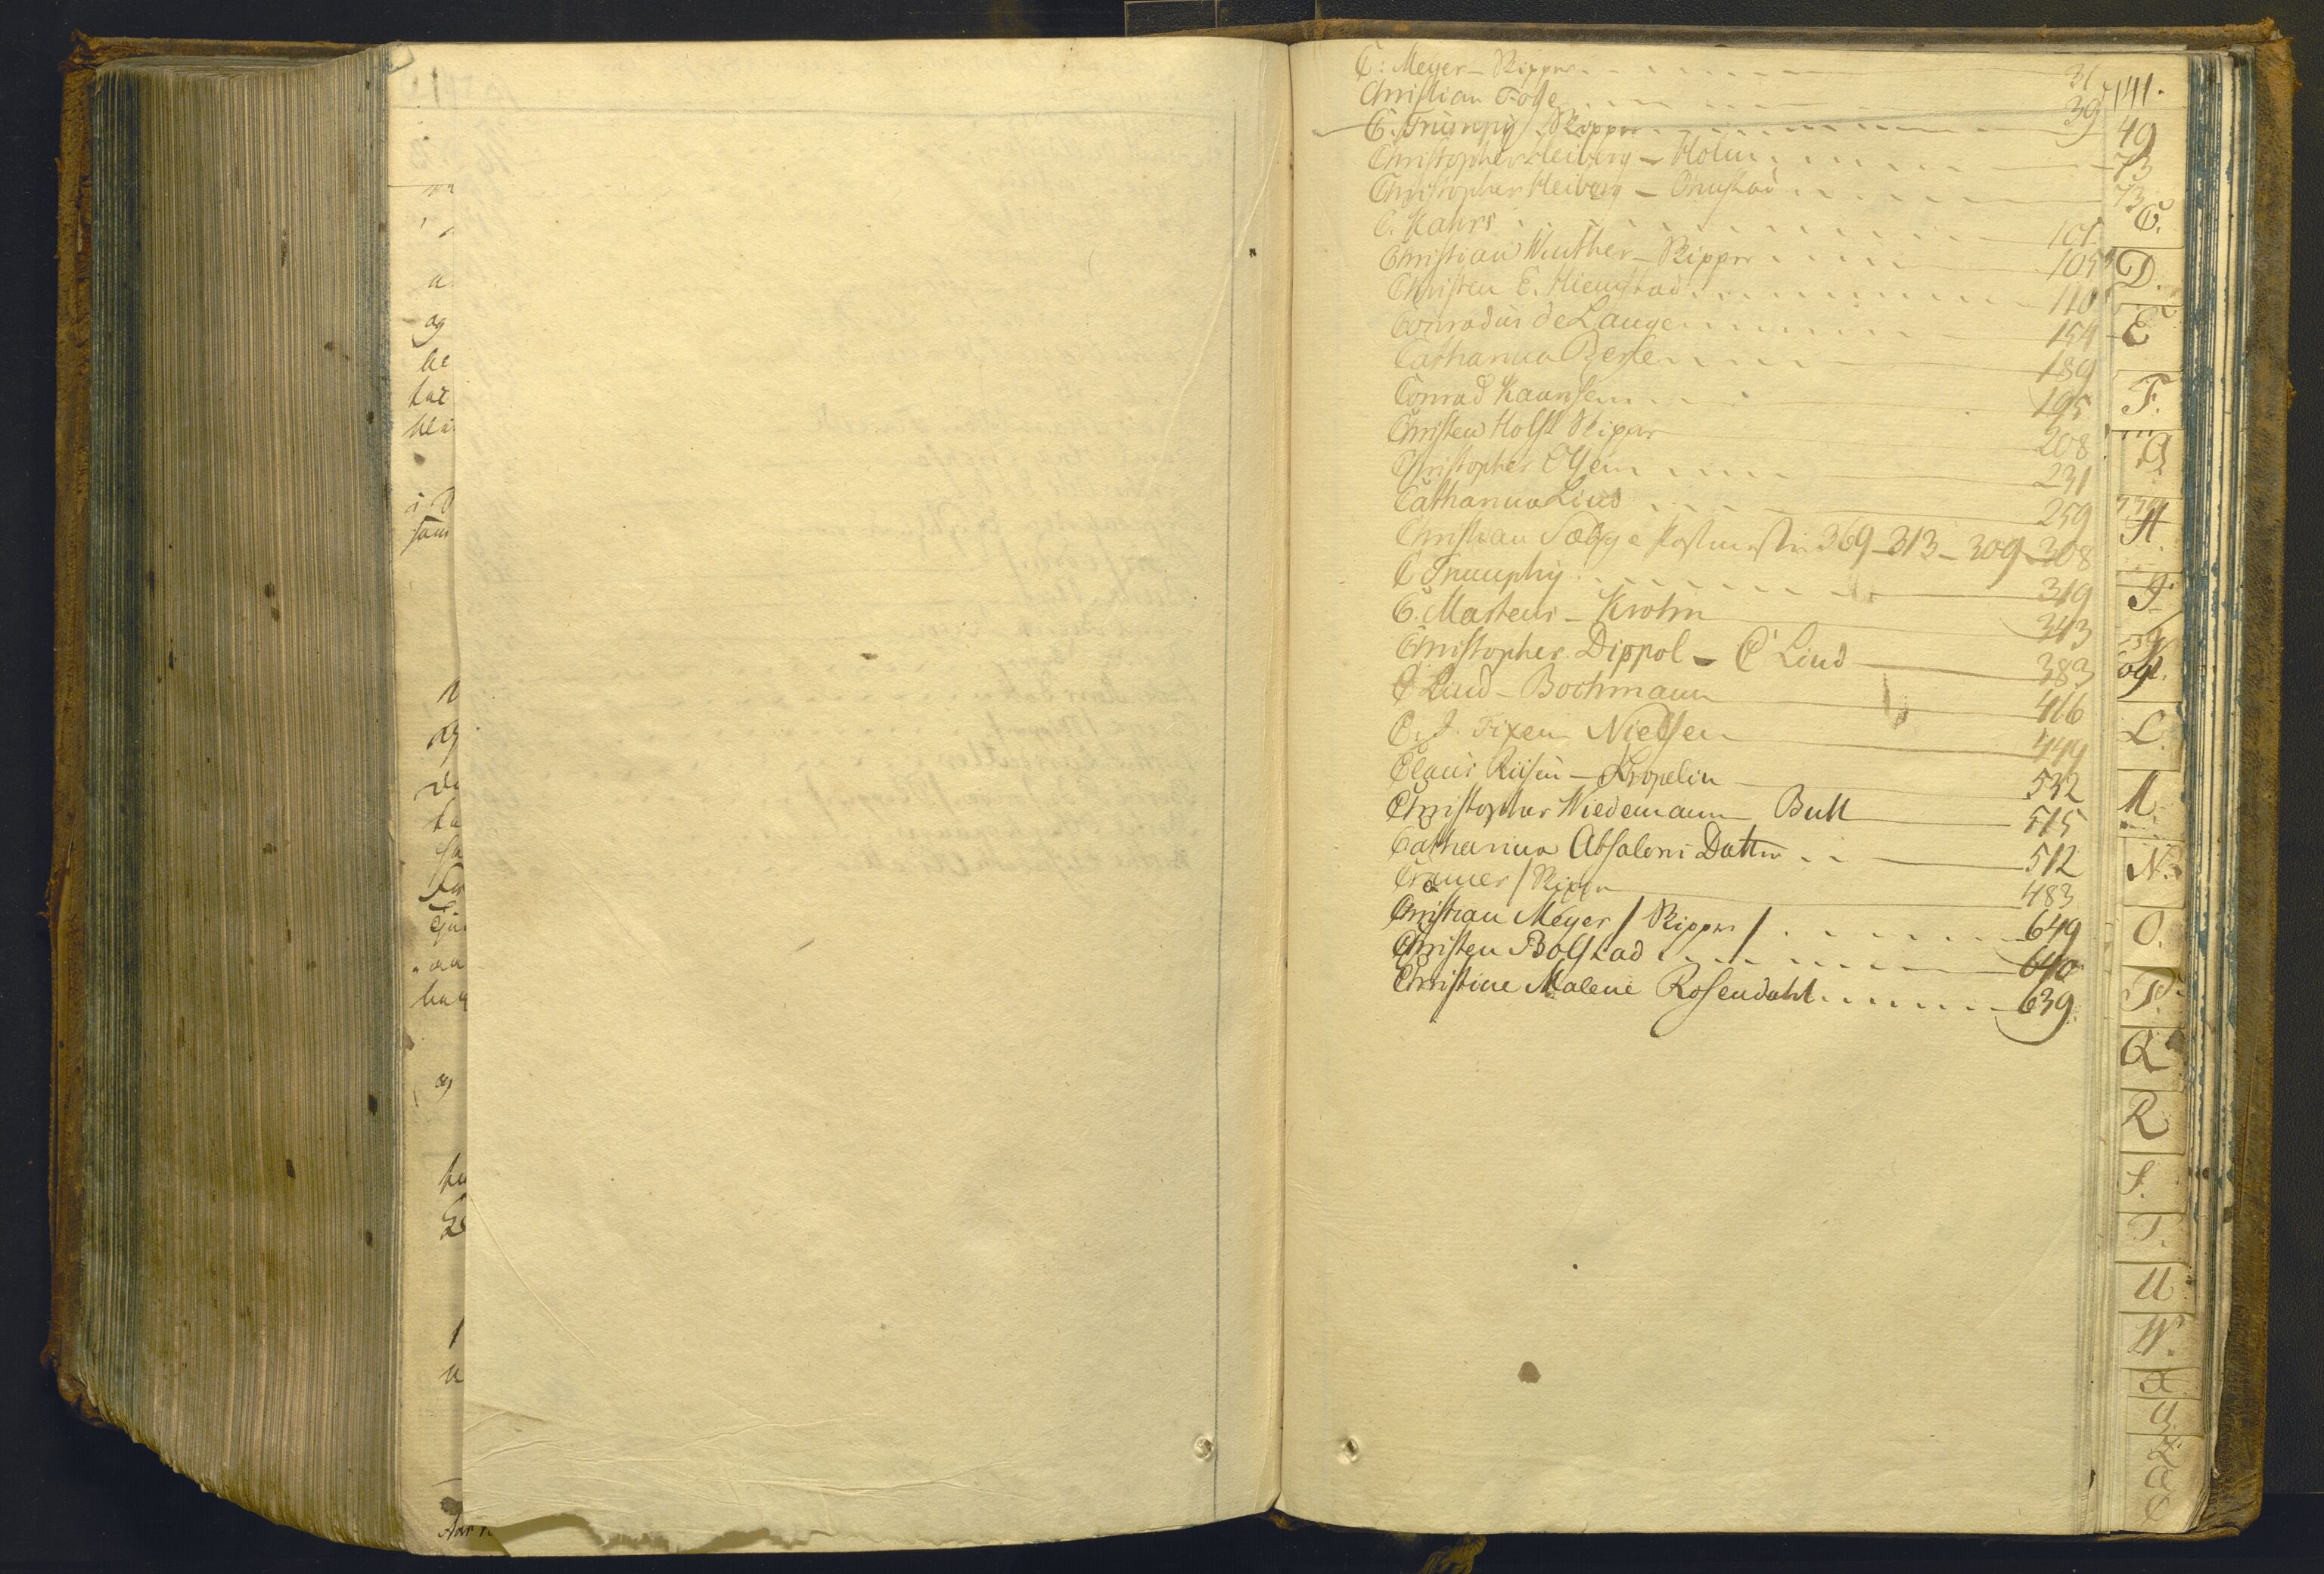 C: Meyer - Skipper 31
Christian Foße 39
C. Trumpy / Skipper 49
Christopher Heiberg - Holm 73
Christopher Heiberg - Onustad 73
C. Kahrs 101
Christian Winther - Skipper 105
Christen E. Hiemstad 110
Conradus de Lange 154
Catharina Berle 189
Conrad Kaansen 195
Christen Holst Skipper 208
Christopher Olsen 231
Catharina Lind 259
Christian Postmester 369 - 313 - 309 - 308
C Trumphy 319
C. Martens - Krohn 343
Christopher Dippol - C Lind 383
C Lind - Bochmann 416
C. J. Fixen Nielsen 449
Claus Riisen - Kropelin 532
Christopher Wiedemann Bull 515
Catharina Absalons Datter 512
Cramer / Skipper 483
Christian Meyer / Skipper / 649
Christen Bolstad 640
Christine Malene Rosendahl 639
141.
C.
D.
E
F.
G.
H.
J.
K.
L.
M.
N.
O.
P.
Q
R
S.
T.
U
W.
X
Y
Z
Æ
og
he
har
og